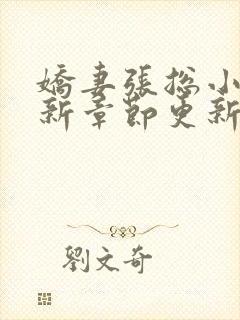 嬌妻張總小
新章節更新
劉文奇